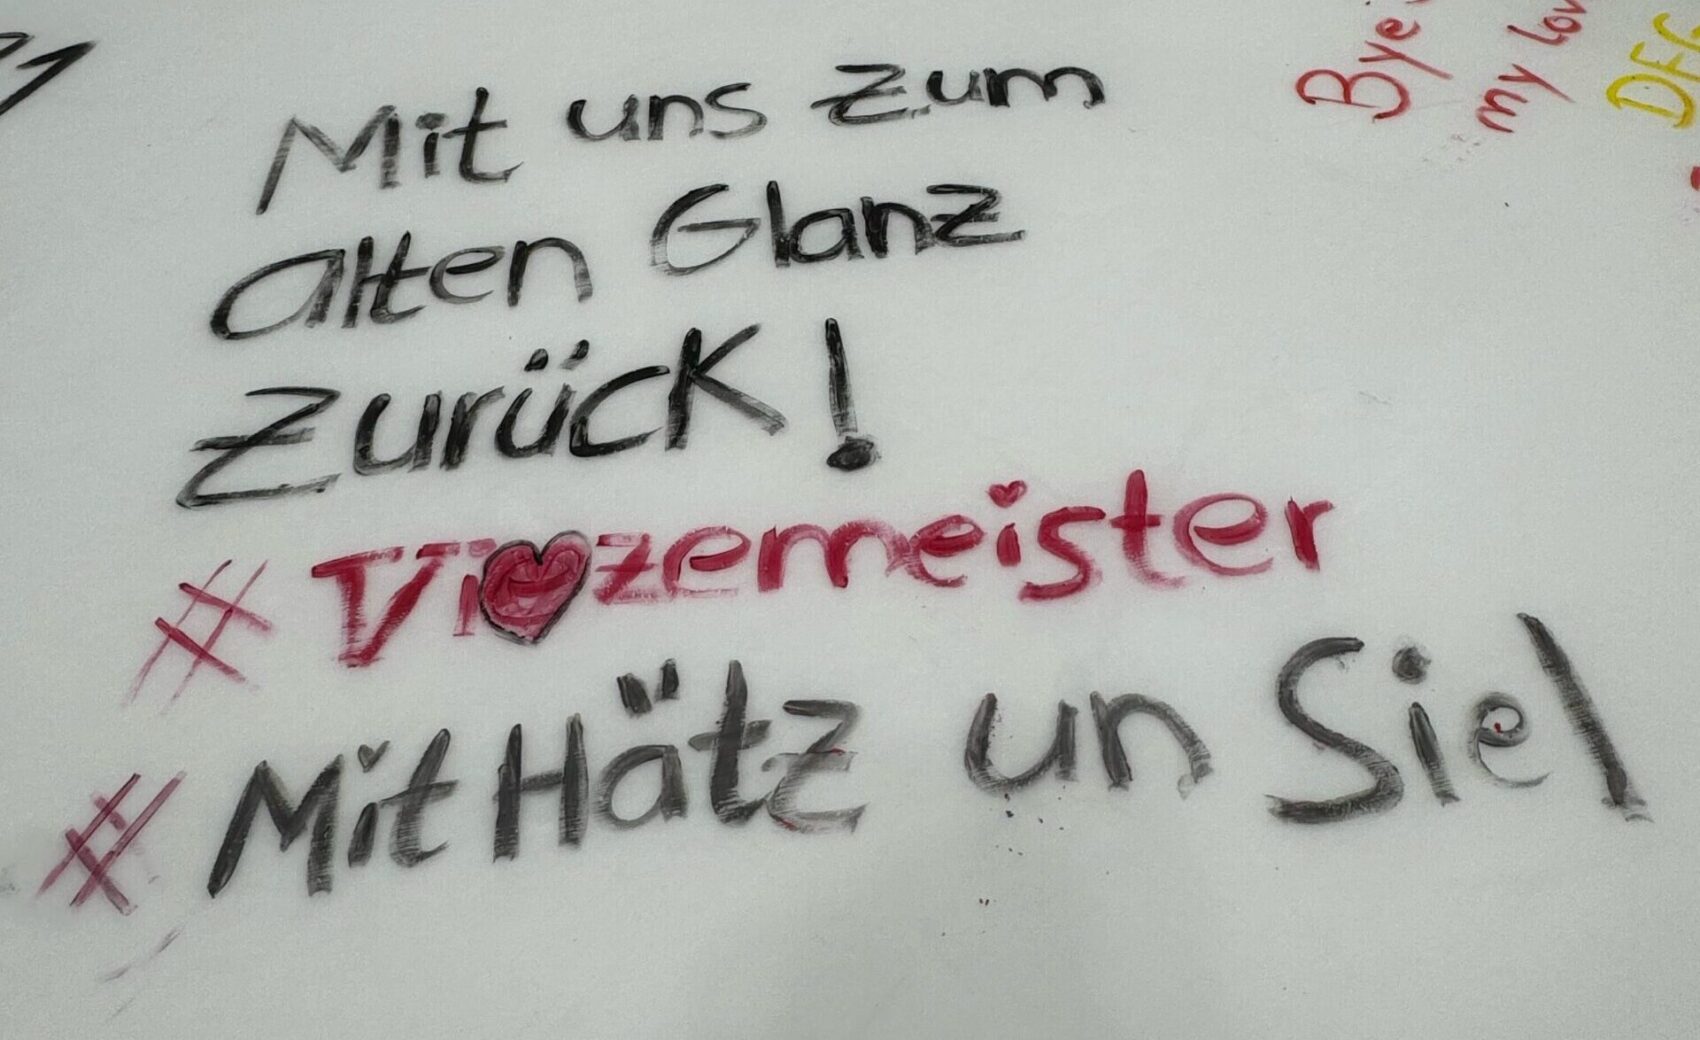 Mit uns zum
alten Glanz
zurück!
# Vizemeister
# Mit Hätz un Siel
Bye
my lov
DEG